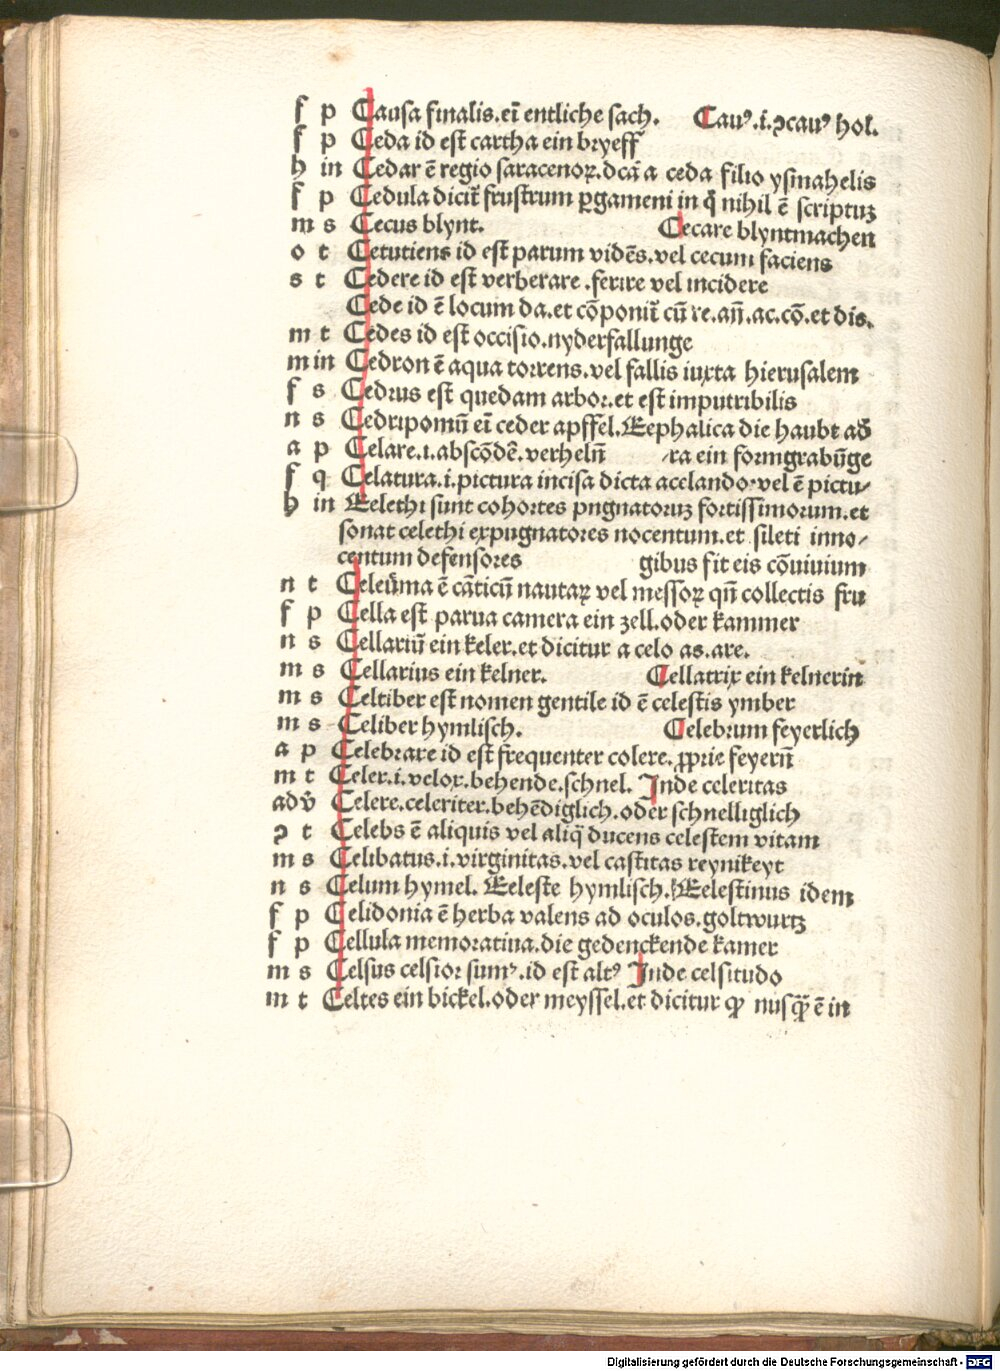 f p Causa finalis.eī entliche sach. Cauꝰ.i.ↄcauꝰ hol.
f p Ceda id est cartha ein bryeff
h in Cedar ē regio saracenoꝝ.dcā a ceda filio ysmahelis
f p Cedula dicit̄ frustrum ꝑgameni in q̄ nihil ē scriptuꝫ
m s Cecus blynt. Cecare blyntmachen
o t Cetutiens id est parum vidēs.vel cecum faciens
s t Cedere id est verberare.ferire vel incidere
Cede id ē locum da.et cōponit̄ cū re.an̄.ac.cō.et dis.
m t Cedes id est occisio.nyderfallunge
m in Cedron ē aqua torrens.vel fallis iuxta hierusalem
f s Cedrus est quedam arbor.et est imputribilis
n s Cedripomū eī ceder apffel.Cephalica die haubt ad̄
a p Celare.i.abscōdē.verheln̄ ⸗ra ein formgrabūge
f q Celatura.i.pictura incisa dicta acelando.vel ē pictu⸗
h in Celethi sunt cohortes pngnatoruꝫ fortissimorum.et
sonat celethi expugnatores nocentum.et sileti inno⸗
centum defensores gibus fit eis cōuiuium
n t Celeūma ē cāticū nautaꝝ vel messoꝝ qn̄ collectis fru
f p Cella est parua camera ein zell.oder kammer
n s Cellariū ein keler.et dicitur a celo as.are.
m s Cellarius ein kelner. Cellatrix ein kelnerin
m s Celtiber est nomen gentile id ē celestis ymber
m s Celiber hymlisch. Celebrum feyerlich
a p Celebrare id est frequenter colere.ꝓprie feyern̄
m t Celer.i.velox.behende.schnel. Inde celeritas
adv̄ Celere.celeriter.behēdiglich.oder schnelliglich
ↄ t Celebs ē aliquis vel aliq̄ ducens celestem vitam
m s Celibatus.i.virginitas.vel castitas reynikeyt
n s Celum hymel. Celeste hymlisch. Celestinus idem
f p Celidonia ē herba valens ad oculos.goltwurtz
f p Cellula memoratiua.die gedenckende kamer
m s Celsus celsior sumꝰ.id est altꝰ Inde celsitudo
m t Celtes ein bickel.oder meyssel.et dicitur qꝫ nusꝗ̄ ē in
Digitalisierung gefördert durch die Deutsche Forschungsgemeinschaft - DFG